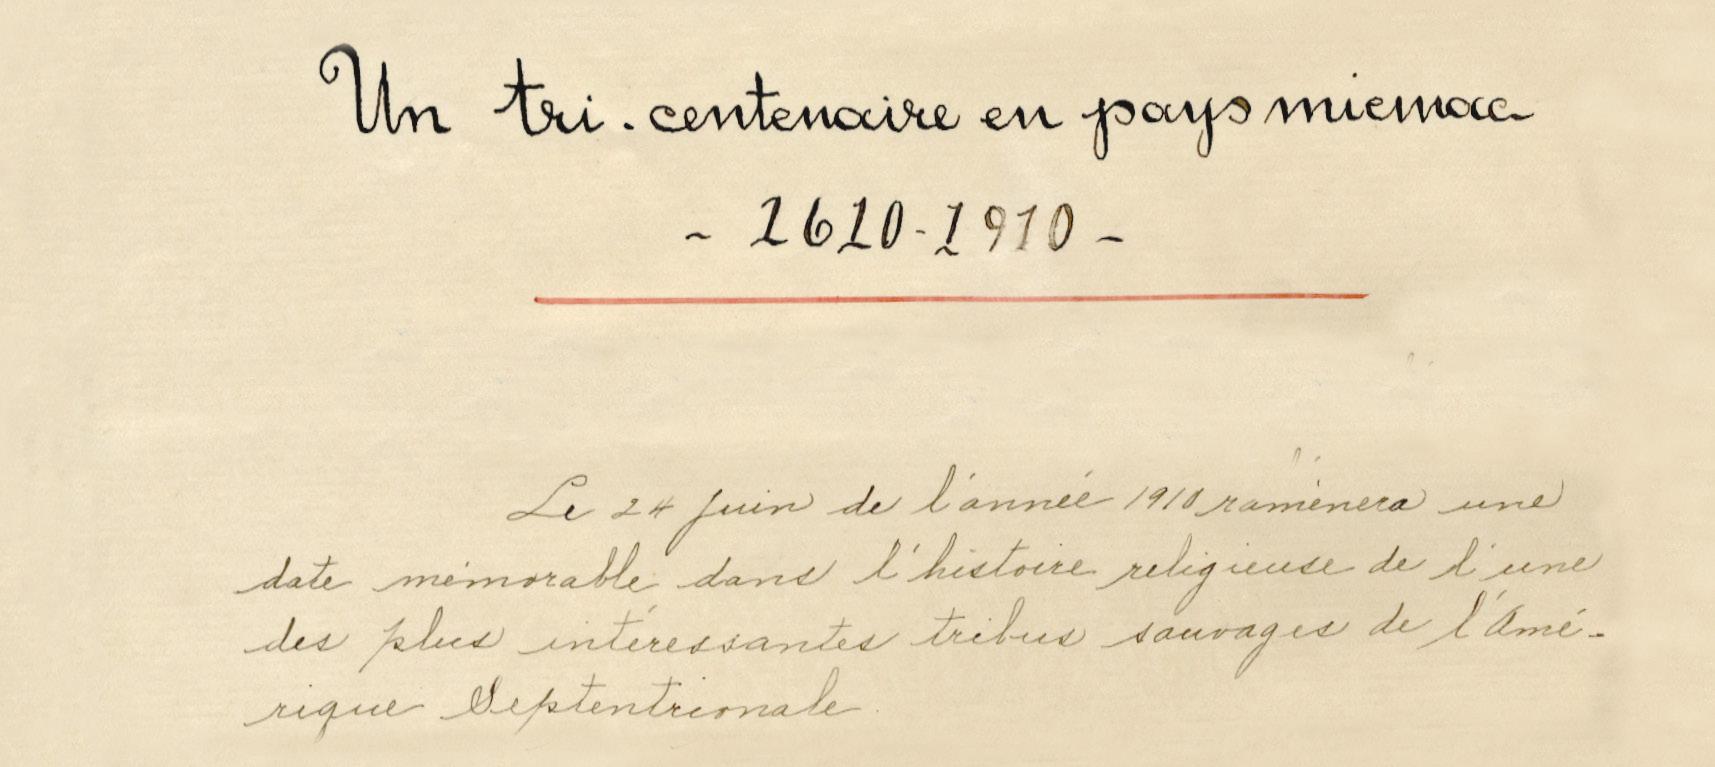 Un tri-centenaire en pays micmac
- 1610-1910 -
Le 24 Juin de l'année 1910 ramènera une
date mémorable dans l'histoire religieuse de l'une
des plus intéressantes tribus sauvages de l'Amé-
rique Septentrionale.